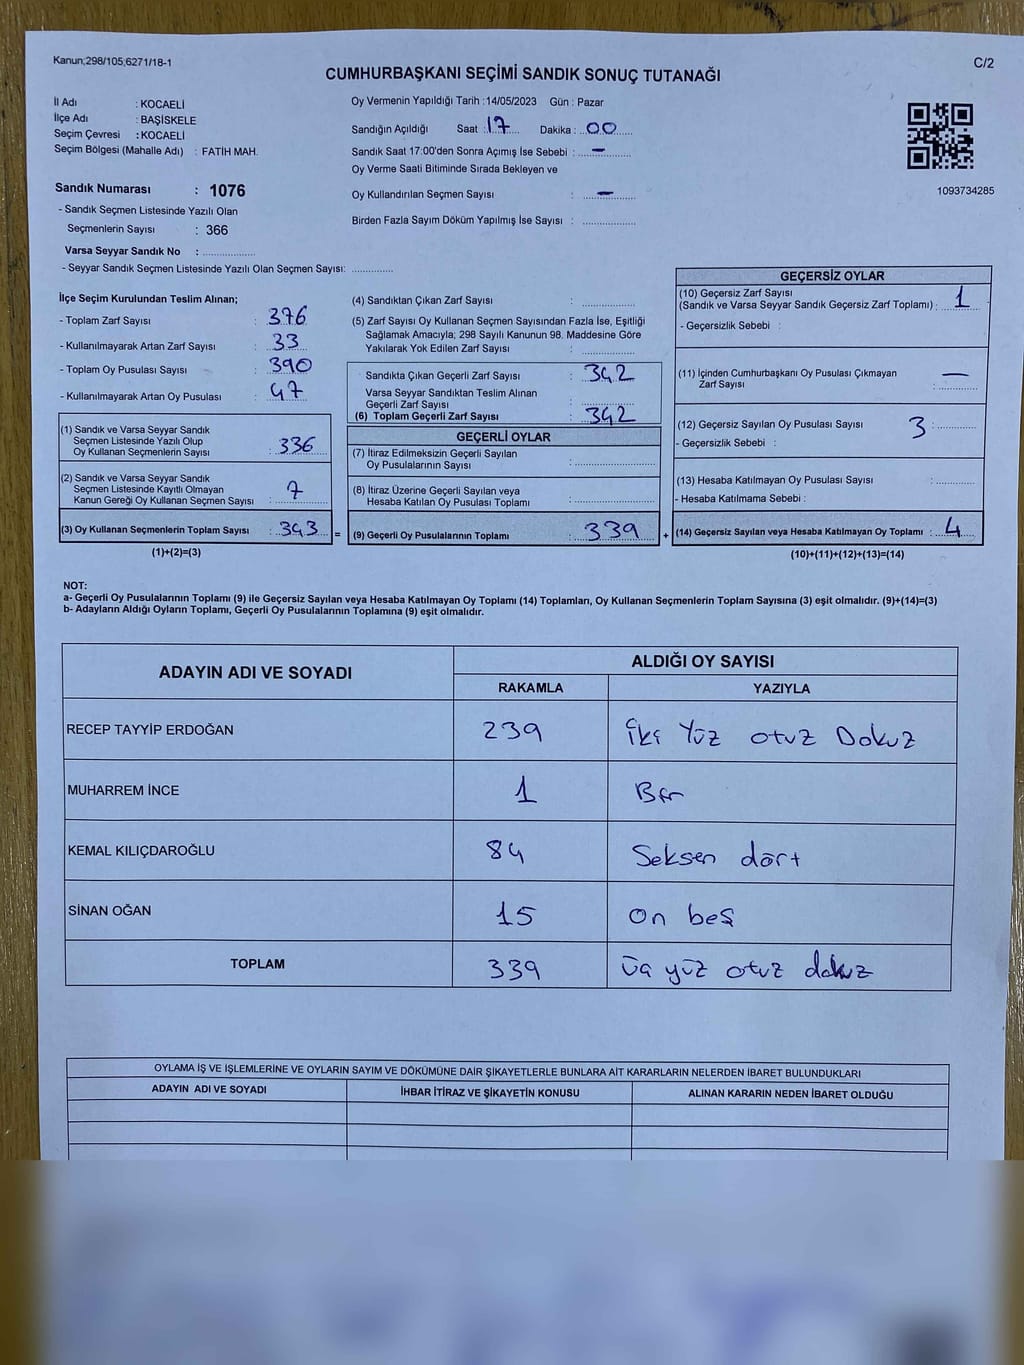 Kanun;298/105;6271/18-1
C/2
CUMHURBAŞKANI SEÇİMİ SANDIK SONUÇ TUTANAĞI
İl Adı : KOCAELİ
İlçe Adı : BAŞİSKELE
Seçim Çevresi : KOCAELİ
Seçim Bölgesi (Mahalle Adı) : FATİH MAH.
Oy Vermenin Yapıldığı Tarih :14/05/2023 Gün : Pazar
Sandığın Açıldığı Saat : 17 Dakika : 00
Sandık Saat 17:00'den Sonra Açımış İse Sebebi : —
Oy Verme Saati Bitiminde Sırada Bekleyen ve
Oy Kullandırılan Seçmen Sayısı : —
Birden Fazla Sayım Döküm Yapılmış İse Sayısı :
1093734285
Sandık Numarası : 1076
- Sandık Seçmen Listesinde Yazılı Olan
Seçmenlerin Sayısı : 366
Varsa Seyyar Sandık No :
- Seyyar Sandık Seçmen Listesinde Yazılı Olan Seçmen Sayısı:
İlçe Seçim Kurulundan Teslim Alınan;
- Toplam Zarf Sayısı : 376
- Kullanılmayarak Artan Zarf Sayısı : 33
- Toplam Oy Pusulası Sayısı : 390
- Kullanılmayarak Artan Oy Pusulası : 47
(1) Sandık ve Varsa Seyyar Sandık
Seçmen Listesinde Yazılı Olup
Oy Kullanan Seçmenlerin Sayısı : 336
(2) Sandık ve Varsa Seyyar Sandık
Seçmen Listesinde Kayıtlı Olmayan
Kanun Gereği Oy Kullanan Seçmen Sayısı : 7
(3) Oy Kullanan Seçmenlerin Toplam Sayısı : 343 =
(1)+(2)=(3)
(4) Sandıktan Çıkan Zarf Sayısı :
(5) Zarf Sayısı Oy Kullanan Seçmen Sayısından Fazla İse, Eşitliği
Sağlamak Amacıyla; 298 Sayılı Kanunun 98. Maddesine Göre
Yakılarak Yok Edilen Zarf Sayısı :
Sandıkta Çıkan Geçerli Zarf Sayısı : 342
Varsa Seyyar Sandıktan Teslim Alınan
Geçerli Zarf Sayısı :
(6) Toplam Geçerli Zarf Sayısı : 342
GEÇERLİ OYLAR
(7) İtiraz Edilmeksizin Geçerli Sayılan
Oy Pusulalarının Sayısı :
(8) İtiraz Üzerine Geçerli Sayılan veya
Hesaba Katılan Oy Pusulası Toplamı :
(9) Geçerli Oy Pusulalarının Toplamı : 339 +
GEÇERSİZ OYLAR
(10) Geçersiz Zarf Sayısı
(Sandık ve Varsa Seyyar Sandık Geçersiz Zarf Toplamı) : 1
- Geçersizlik Sebebi :
(11) İçinden Cumhurbaşkanı Oy Pusulası Çıkmayan
Zarf Sayısı : —
(12) Geçersiz Sayılan Oy Pusulası Sayısı : 3
- Geçersizlik Sebebi :
(13) Hesaba Katılmayan Oy Pusulası Sayısı :
- Hesaba Katılmama Sebebi :
(14) Geçersiz Sayılan veya Hesaba Katılmayan Oy Toplamı : 4
(10)+(11)+(12)+(13)=(14)
NOT:
a- Geçerli Oy Pusulalarının Toplamı (9) ile Geçersiz Sayılan veya Hesaba Katılmayan Oy Toplamı (14) Toplamları, Oy Kullanan Seçmenlerin Toplam Sayısına (3) eşit olmalıdır. (9)+(14)=(3)
b- Adayların Aldığı Oyların Toplamı, Geçerli Oy Pusulalarının Toplamına (9) eşit olmalıdır.
ADAYIN ADI VE SOYADI
ALDIĞI OY SAYISI
RAKAMLA YAZIYLA
RECEP TAYYİP ERDOĞAN 239 iki Yüz otuz Dokuz
MUHARREM İNCE 1 Bir
KEMAL KILIÇDAROĞLU 84 Seksen dört
SİNAN OĞAN 15 On beş
TOPLAM 339 üç yüz otuz dokuz
OYLAMA İŞ VE İŞLEMLERİNE VE OYLARIN SAYIM VE DÖKÜMÜNE DAİR ŞİKAYETLERLE BUNLARA AİT KARARLARIN NELERDEN İBARET BULUNDUKLARI
ADAYIN ADI VE SOYADI İHBAR İTİRAZ VE ŞİKAYETİN KONUSU ALINAN KARARIN NEDEN İBARET OLDUĞU